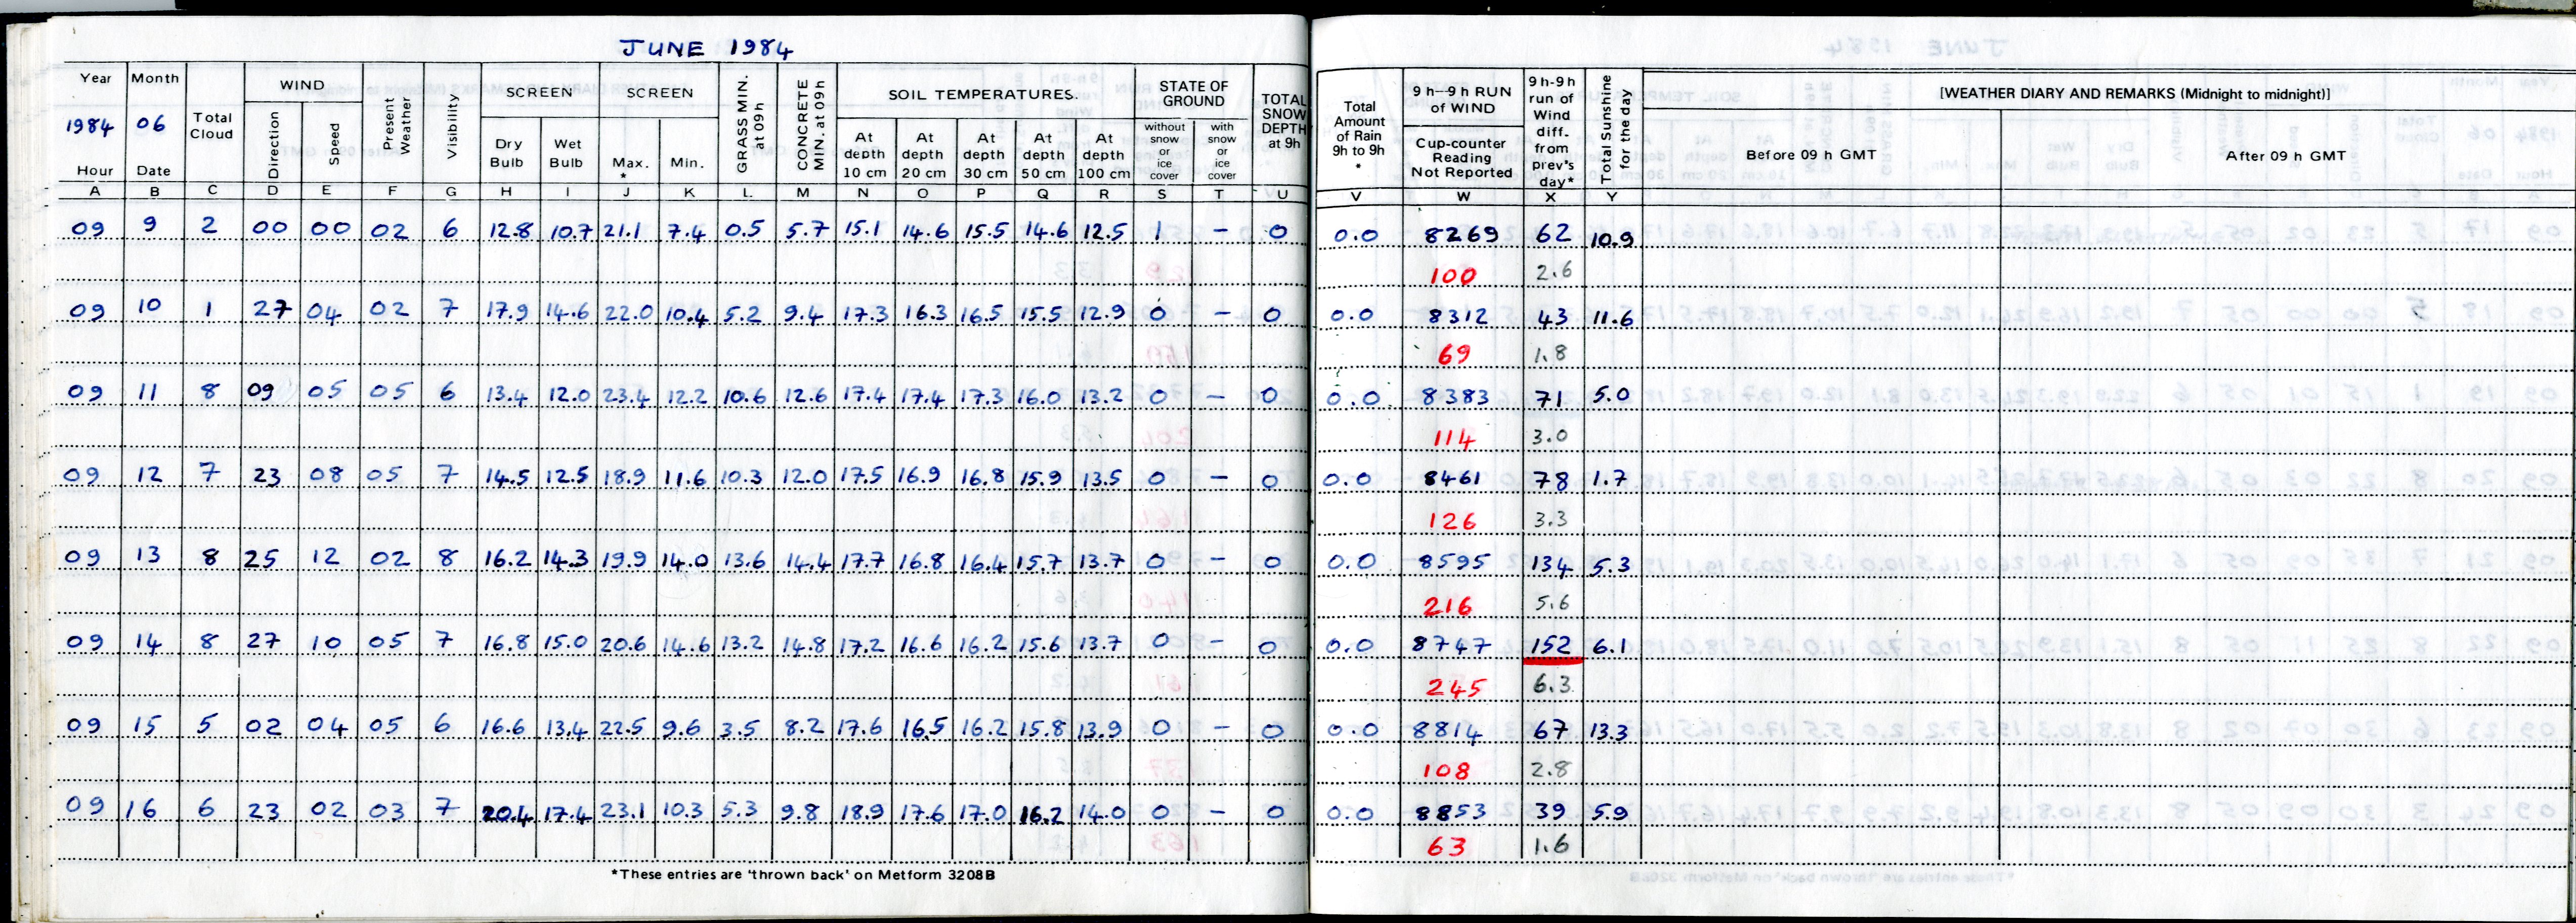 JUNE 1984
Year Month Total Cloud WIND Present Weather Visibility SCREEN SCREEN GRASS MIN. at 09h CONCRETE MIN. at 09h SOIL TEMPERATURES. STATE OF GROUND TOTAL SNOW DEPTH at 9h Total Amount of Rain 9h to 9h * 9h—9h RUN of WIND 9h-9h run of Wind diff. from prev's day* Total Sunshine for the day [WEATHER DIARY AND REMARKS (Midnight to midnight)]
1984 06 Direction Speed Dry Bulb Wet Bulb Max. * Min. At depth 10 cm At depth 20 cm At depth 30 cm At depth 50 cm At depth 100 cm without snow or ice cover with snow or ice cover Cup-counter Reading Not Reported Before 09 h GMT After 09 h GMT
Hour Date
A B C D E F G H I J K L M N O P Q R S T U V W X Y
09 9 2 00 00 02 6 12.8 10.7 21.1 7.4 0.5 5.7 15.1 14.6 15.5 14.6 12.5 1 – 0 0.0 8269 62 10.9
100 2.6
09 10 1 27 04 02 7 17.9 14.6 22.0 10.4 5.2 9.4 17.3 16.3 16.5 15.5 12.9 0 – 0 0.0 8312 43 11.6
69 1.8
09 11 8 09 05 05 6 13.4 12.0 23.4 12.2 10.6 12.6 17.4 17.4 17.3 16.0 13.2 0 – 0 0.0 8383 71 5.0
114 3.0
09 12 7 23 08 05 7 14.5 12.5 18.9 11.6 10.3 12.0 17.5 16.9 16.8 15.9 13.5 0 – 0 0.0 8461 78 1.7
126 3.3
09 13 8 25 12 02 8 16.2 14.3 19.9 14.0 13.6 14.4 17.7 16.8 16.4 15.7 13.7 0 – 0 0.0 8595 134 5.3
216 5.6
09 14 8 27 10 05 7 16.8 15.0 20.6 14.6 13.2 14.8 17.2 16.6 16.2 15.6 13.7 0 – 0 0.0 8747 152 6.1
245 6.3
09 15 5 02 04 05 6 16.6 13.4 22.5 9.6 3.5 8.2 17.6 16.5 16.2 15.8 13.9 0 – 0 0.0 8814 67 13.3
108 2.8
09 16 6 23 02 03 7 20.4 17.4 23.1 10.3 5.3 9.8 18.9 17.6 17.0 16.2 14.0 0 – 0 0.0 8853 39 5.9
63 1.6
*These entries are 'thrown back' on Metform 3208B